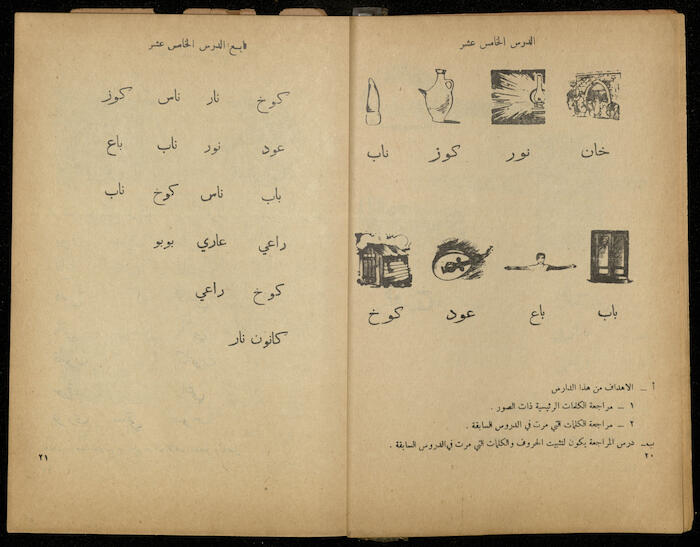 الدرس الخامس عشر
خان نور كوز ناب
باب باع عود كوخ
أ ــ الاهداف من هذا الدارس
١ ــ مراجعة الكلمات الرئيسية ذات الصور .
٢ ــ مراجعة الكلمات التي مرت في الدروس السابقة .
ب ــ درس المراجعة يكون لتثبيت الحروف والكلمات التي مرت في الدروس السابقة .
٢٠
تابع الدرس الخامس عشر
كوخ نار ناس كوز
عود نور ناب باع
باب ناس كوخ ناب
راعي عاري بوبو
كوخ راعي
كانون نار
٢١